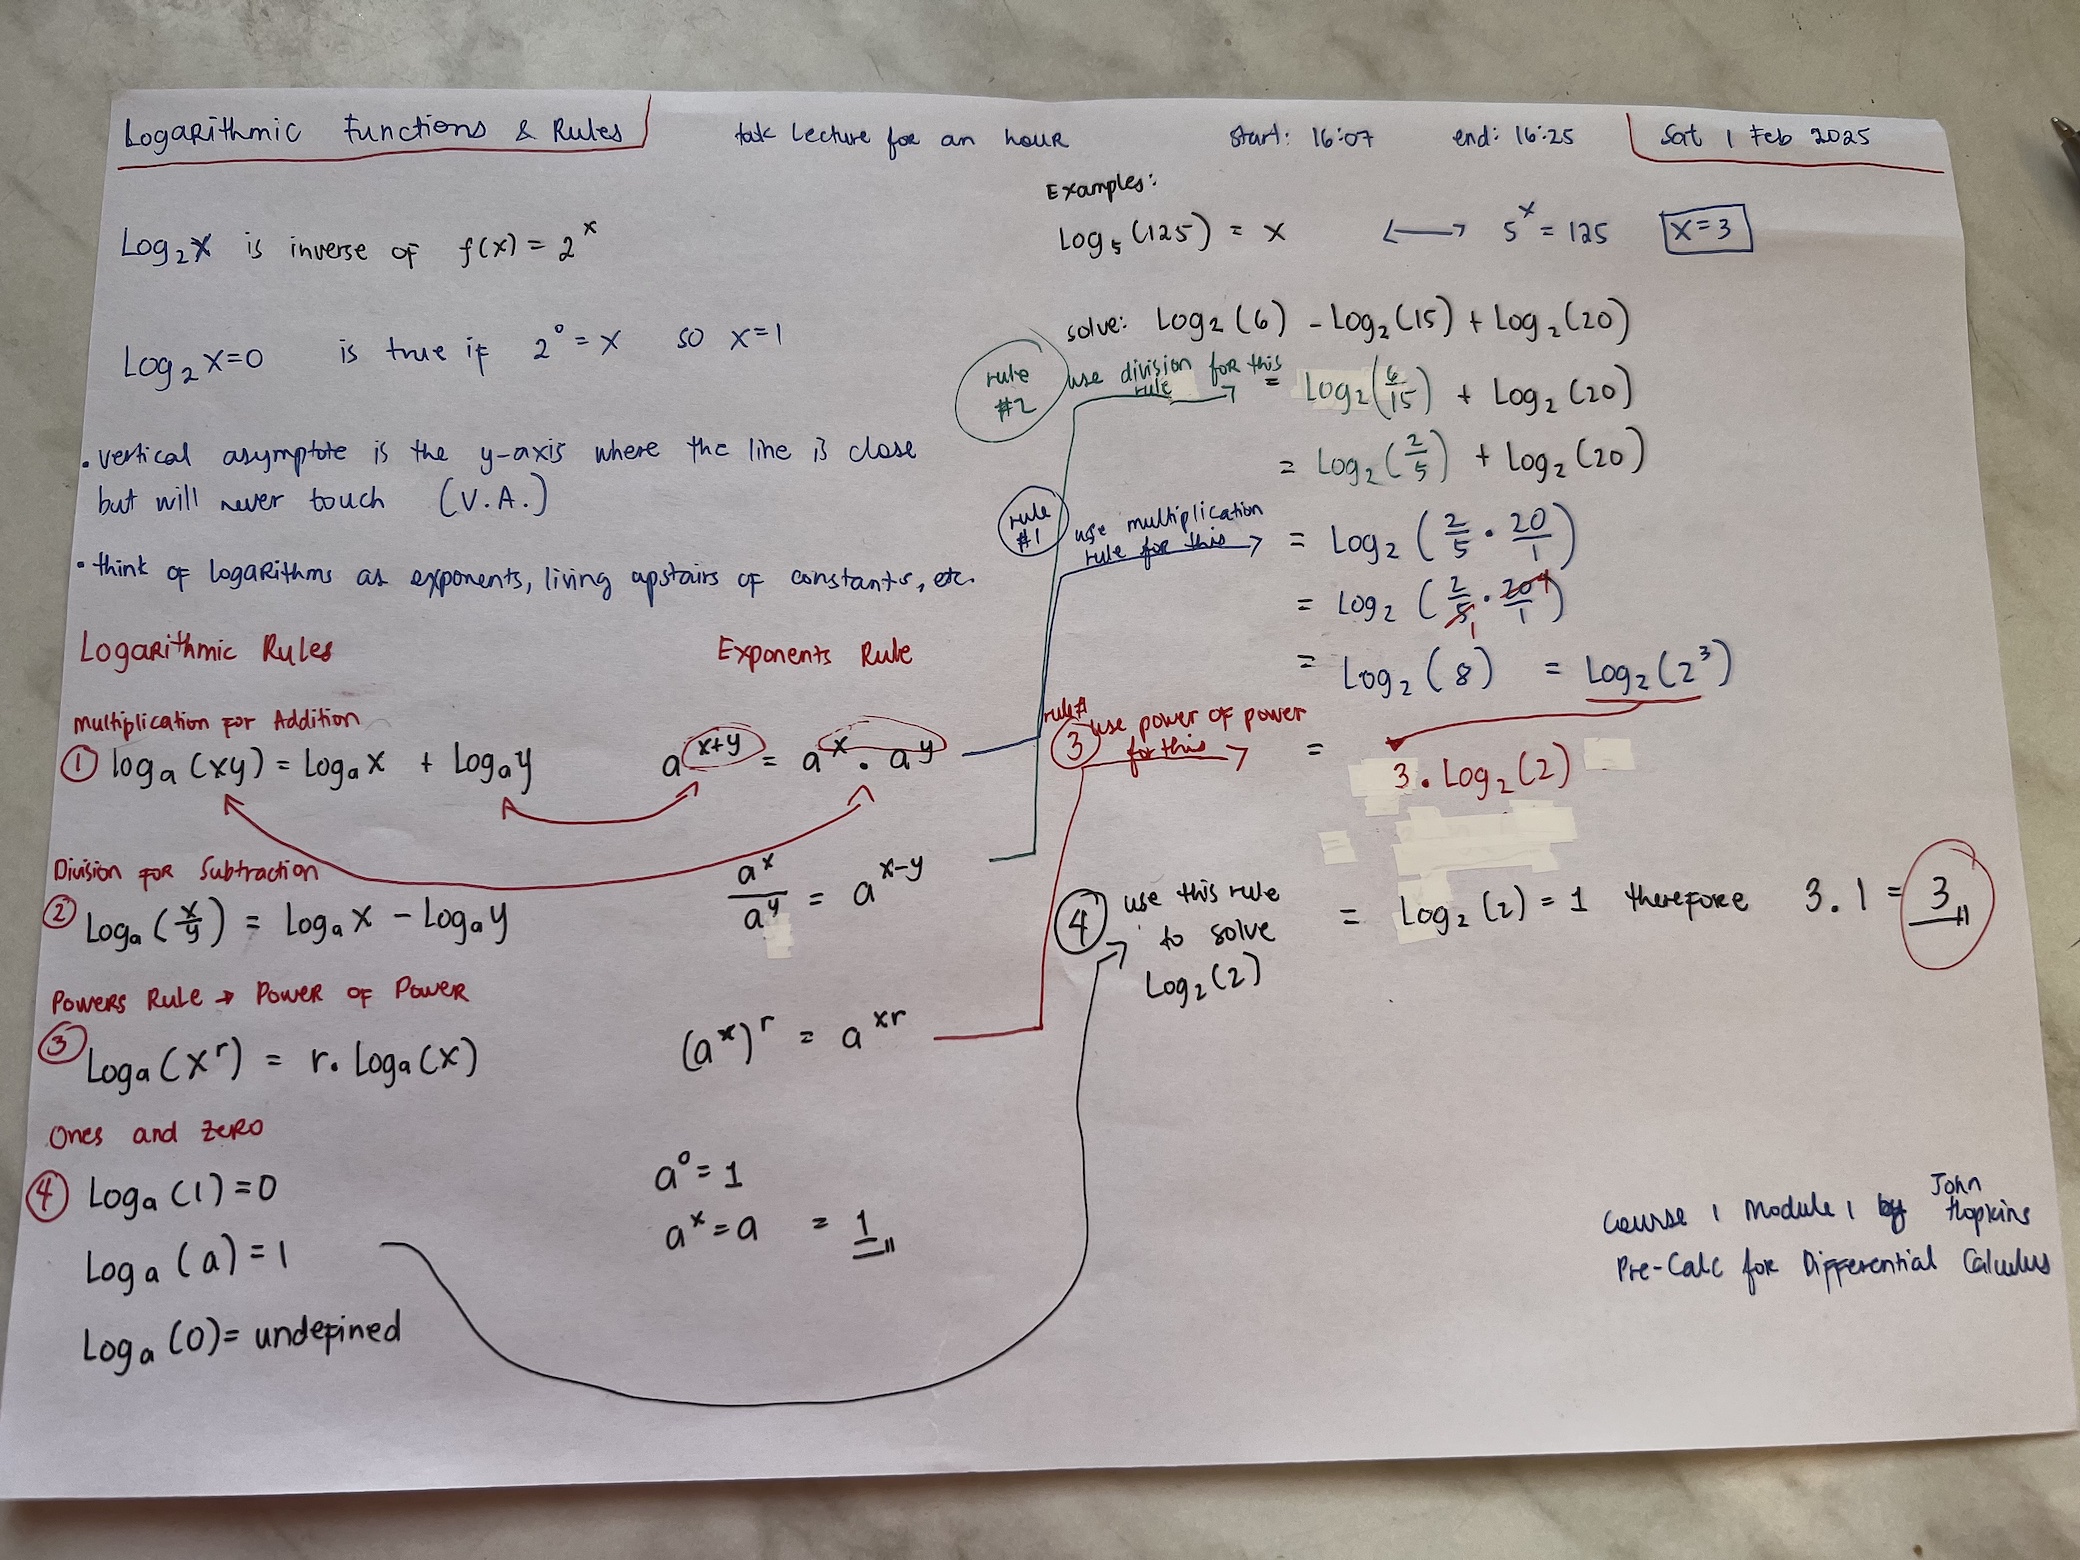 Logarithmic Functions & Rules
took lecture for an hour
start: 16:07 end: 16:25
Sat 1 Feb 2025
Log₂x is inverse of f(x) = 2ˣ
Log₂x=0 is true if 2⁰ = x so x=1
• vertical asymptote is the y-axis where the line is close
but will never touch (V.A.)
• think of logarithms as exponents, living upstairs of constants, etc.
Logarithmic Rules
Exponents Rule
Multiplication for Addition
① logₐ(xy) = Logₐx + Logₐy
aˣ⁺ʸ = aˣ · aʸ
Division for Subtraction
② Logₐ(x/y) = Logₐx − Logₐy
aˣ/aʸ = aˣ⁻ʸ
Powers Rule → Power of Power
③ Logₐ(xʳ) = r. Logₐ(x)
(aˣ)ʳ = aˣʳ
Ones and zero
④ Logₐ(1)=0
a⁰=1
Logₐ(a)=1
aˣ=a = 1
Logₐ(0)= undefined
Examples:
Log₅(125) = x ⟷ 5ˣ = 125 x=3
solve: Log₂(6) − Log₂(15) + Log₂(20)
rule #2
use division for this
rule
= Log₂(6/15) + Log₂(20)
= Log₂(2/5) + Log₂(20)
rule #1
use multiplication
rule for this
= Log₂(2/5 · 20/1)
= Log₂(2/5 1 · 20 4/1)
= Log₂(8) = Log₂(2³)
rule#
3
use power of power
for this
= 3. Log₂(2)
4
use this rule
to solve
Log₂(2)
= Log₂(2) = 1 therefore 3.1 = 3
Course 1 Module 1 by John Hopkins
Pre-Calc for Differential Calculus